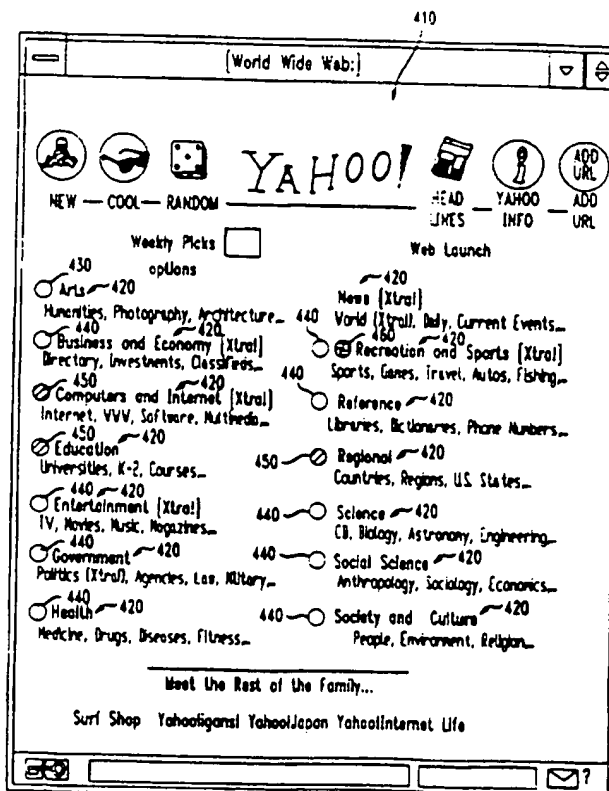 410
[World Wide Web:]
YAHOO!
ADD URL
NEW — COOL — RANDOM
HEAD LINES — YAHOO INFO — ADD URL
Weekly Picks
Web Launch
options
430
Arts 420
Humanities, Photography, Architecture...
440 420
Business and Economy [Xtra!]
Directory, Investments, Classifieds...
450 420
Computers and Internet [Xtra!]
Internet, VVV, Software, Multimedia...
450
Education 420
Universities, K-2, Courses...
440 420
Entertainment [Xtra!]
TV, Movies, Music, Magazines...
440
Government 420
Politics [Xtra!], Agencies, Law, Military...
440
Health 420
Medicine, Drugs, Diseases, Fitness...
420
News [Xtra!]
World [Xtra!], Daily, Current Events...
440 460 420
Recreation and Sports [Xtra!]
Sports, Games, Travel, Autos, Fishing...
440
Reference 420
Libraries, Dictionaries, Phone Numbers...
450 Regional 420
Countries, Regions, U.S. States...
440 Science 420
CB, Biology, Astronomy, Engineering...
440 Social Science 420
Anthropology, Sociology, Economics...
440 Society and Culture 420
People, Environment, Religion...
Meet the Rest of the Family...
Surf Shop Yahooligans! Yahoo!Japan Yahoo!Internet Life
?